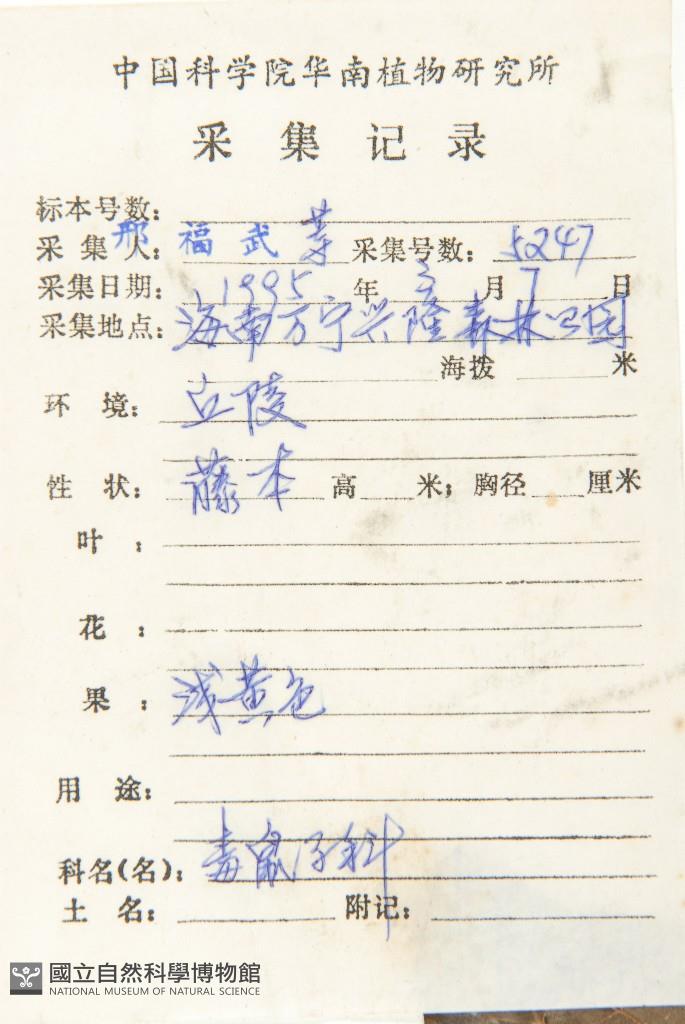 中国科学院华南植物研究所
采集记录
标本号数：
采集人：邢福武等 采集号数：5247
采集日期：1995年3月7日
采集地点：海南万宁兴隆森林公园
海拨 米
环境：丘陵
性状：藤本 高 米；胸径 厘米
叶：
花：
果：浅黄色
用途：
科名(名)：毒鼠子科
土名： 附记：
國立自然科學博物館
NATIONAL MUSEUM OF NATURAL SCIENCE